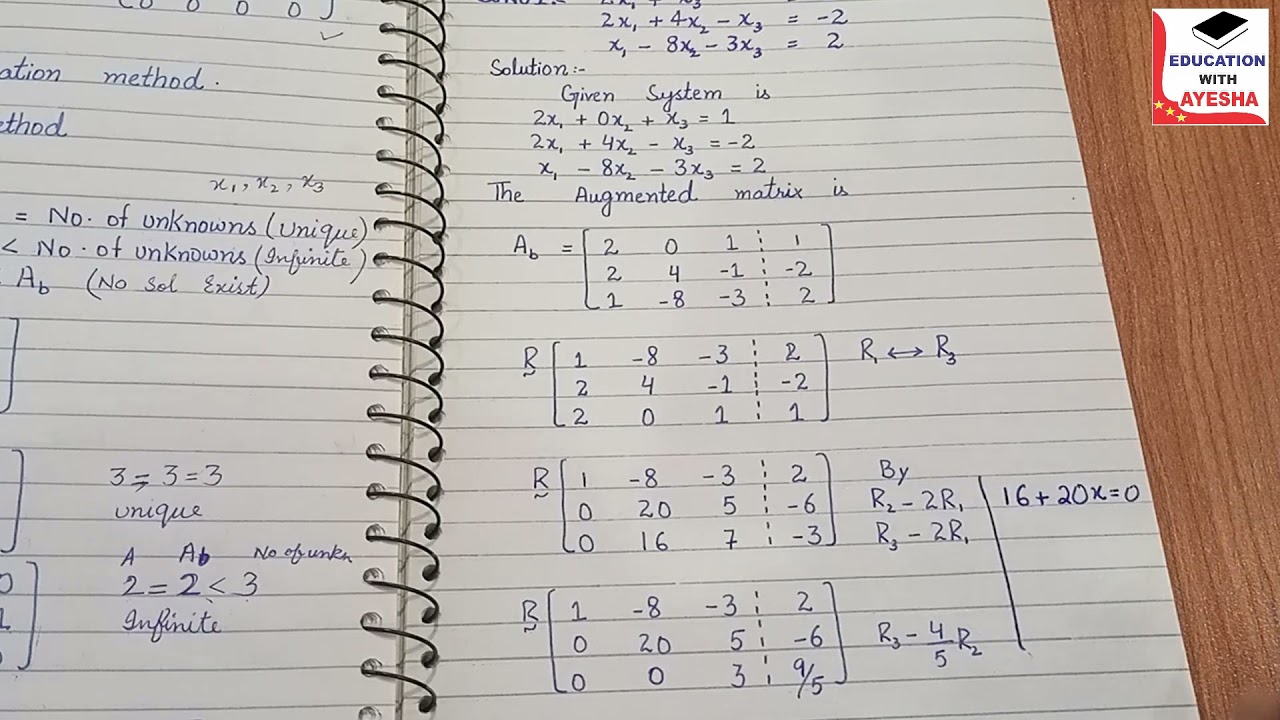 0 0 0 0
ation method.
ethod
x₁, x₂, x₃
= No. of unknowns (Unique)
< No. of unknowns (Infinite)
A_b (No Sol Exist)
3 = 3 = 3
unique
A A_b No of unkn
2 = 2 < 3
Infinite
2x₁ + 4x₂ - x₃ = -2
x₁ - 8x₂ - 3x₃ = 2
Solution:-
Given System is
2x₁ + 0x₂ + x₃ = 1
2x₁ + 4x₂ - x₃ = -2
x₁ - 8x₂ - 3x₃ = 2
The Augmented matrix is
A_b = [ 2 0 1 ¦ 1
2 4 -1 ¦ -2
1 -8 -3 ¦ 2 ]
R [ 1 -8 -3 ¦ 2 ] R₁ ↔ R₃
2 4 -1 ¦ -2
2 0 1 ¦ 1
R [ 1 -8 -3 ¦ 2 ] By
0 20 5 ¦ -6 R₂ - 2R₁ | 16 + 20x = 0
0 16 7 ¦ -3 R₃ - 2R₁
R [ 1 -8 -3 ¦ 2 ]
0 20 5 ¦ -6 R₃ - 4/5 R₂
0 0 3 ¦ 9/5
EDUCATION
WITH
AYESHA